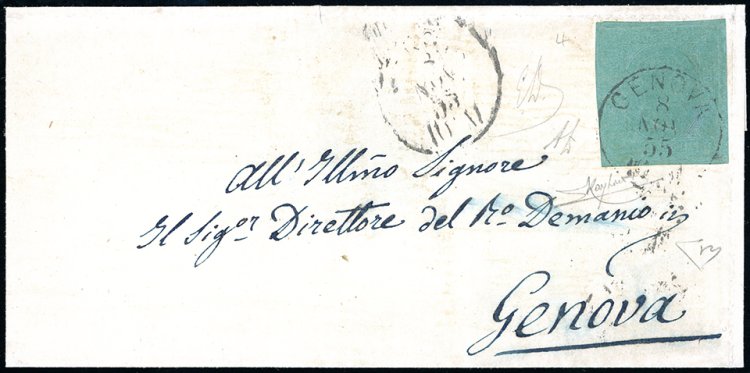 GENOVA
8
AGO
55
All' Illmo Signore
Il Sigor Direttore del Ro Demanio in
Genova